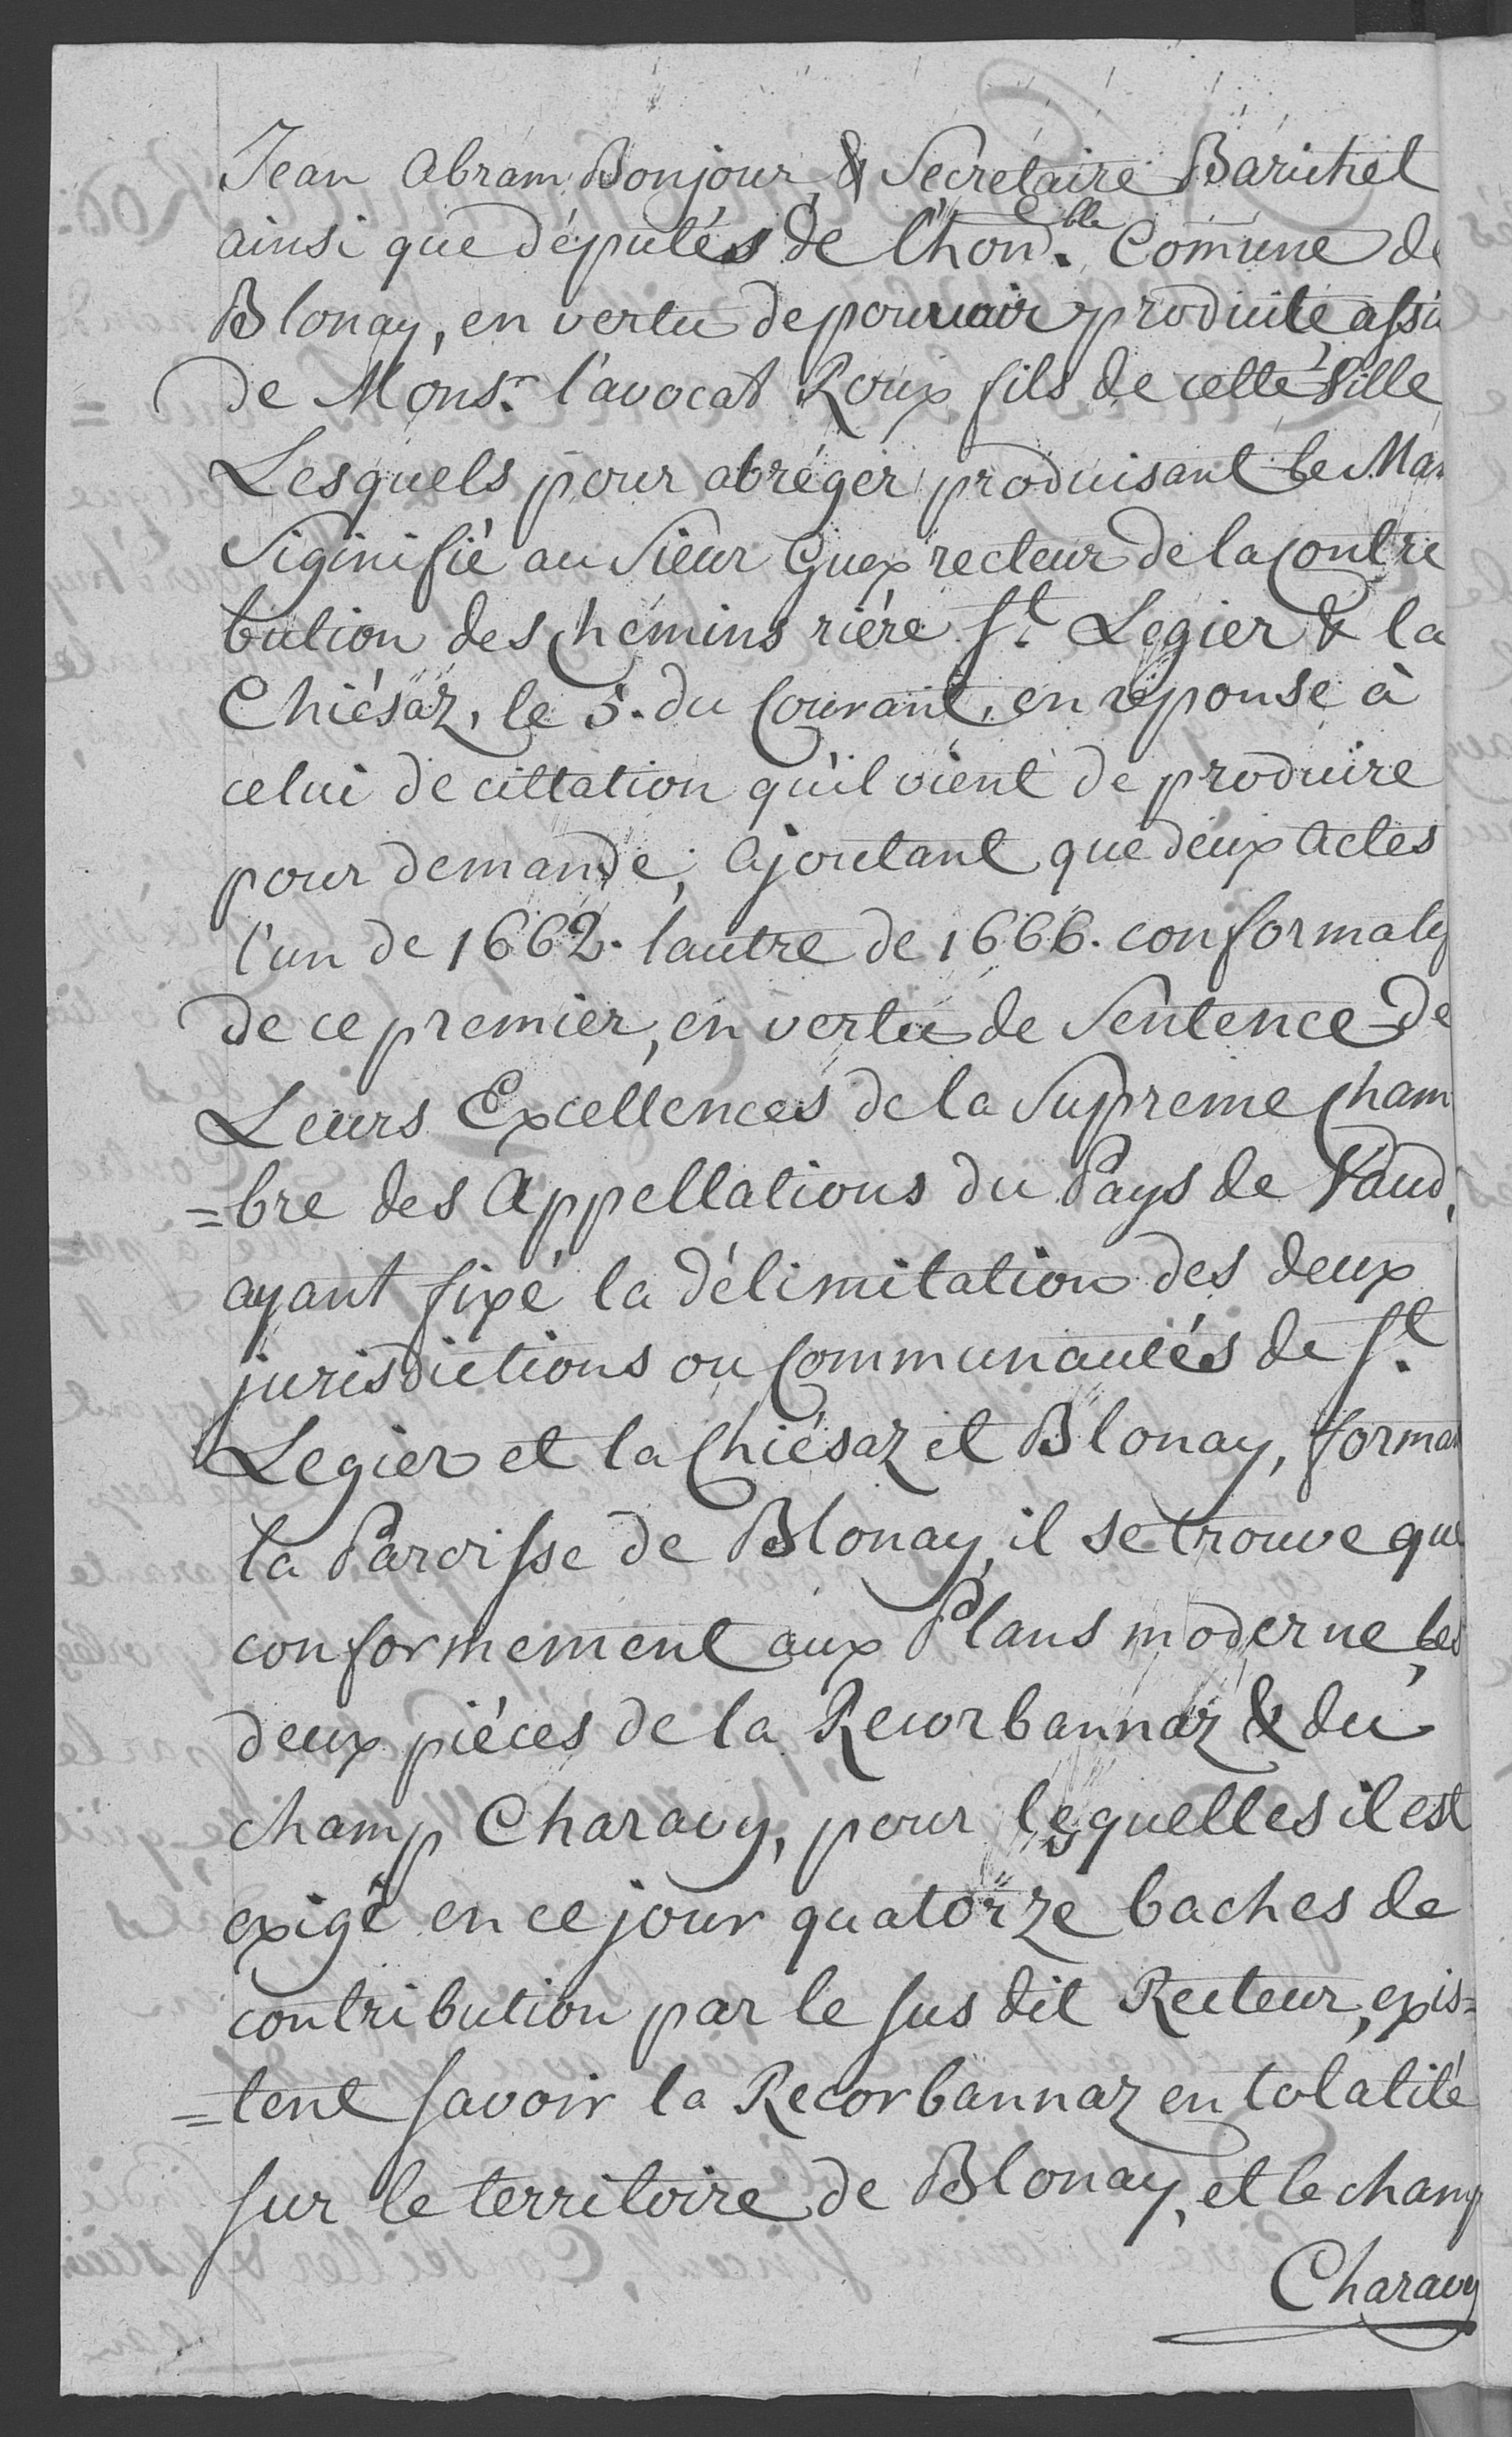 Jean Abram Bonjour, & Secretaire Barichel
ainsi que députés de l'hon.ble Comune de
Blonay, en vertu de pouruoir produite, assi
de Mons.r l'avocat Roux fils de cette Ville
Lesquels pour abréger produisant le Man
Siginifié au Sieur Guex recteur de la Contre
bution des Chemins riére St. Legier & la
Chiésaz, le 5. du Courant, en réponse à
celui de cittation qu'il vient de produire
pour demande; Ajoutant que deux Actes
l'un de 1662. lautre de 1666. conformaty
de ce premier, en vertu de Sentence de
Leurs Excellences de la Supreme Cham
=bre des Appellations du Pays de Vaud,
ayant fixé la délimitation des deux
jurisdictions ou Communautés de St.
Legier et la Chiésaz et Blonay, forman
la Paroisse de Blonay, il se trouve que
conformement aux Plans moderne, les
deux piéces de la Recorbannaz & du
champ Charavy, pour lesquelles il est
exigé en ce jour quatorze baches de
contribution par le sus dit Recteur, exis=
=tent savoir la Recorbannaz en totatité
sur le territoire de Blonay, et le champ
Charavy